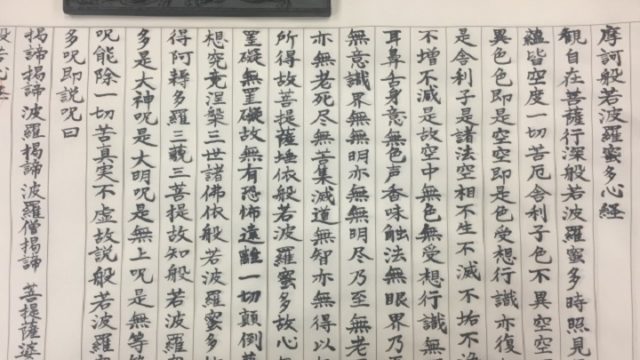 摩訶般若波羅蜜多心経
観自在菩薩行深般若波羅蜜多時照見
蘊皆空度一切苦厄舎利子色不異空空
異色色即是空空即是色受想行識亦復
是舎利子是諸法空相不生不滅不垢不浄
不増不減是故空中無色無受想行識無
耳鼻舌身意無色声香味触法無眼界乃
無意識界無無明亦無無明尽乃至無老
亦無老死尽無苦集滅道無智亦無得以
所得故菩提薩埵依般若波羅蜜多故心
罣礙無罣礙故無有恐怖遠離一切顛倒夢
想究竟涅槃三世諸佛依般若波羅蜜多
得阿耨多羅三藐三菩提故知般若波羅蜜
多是大神呪是大明呪是無上呪是無等
呪能除一切苦真実不虚故説般若波羅蜜
多呪即説呪曰
揭諦揭諦波羅揭諦波羅僧揭諦 菩提薩婆
般若心経